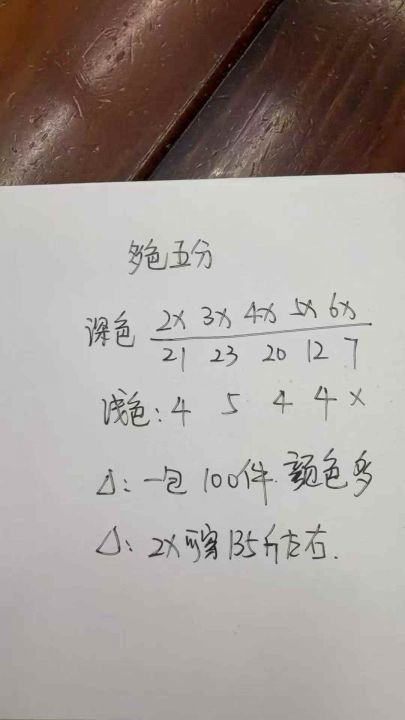 多色五分
深色 2X 3X 4X 5X 6X
21 23 20 12 7
浅色: 4 5 4 4 X
△: 一包 100件 颜色多
△: 2X可穿135斤左右.